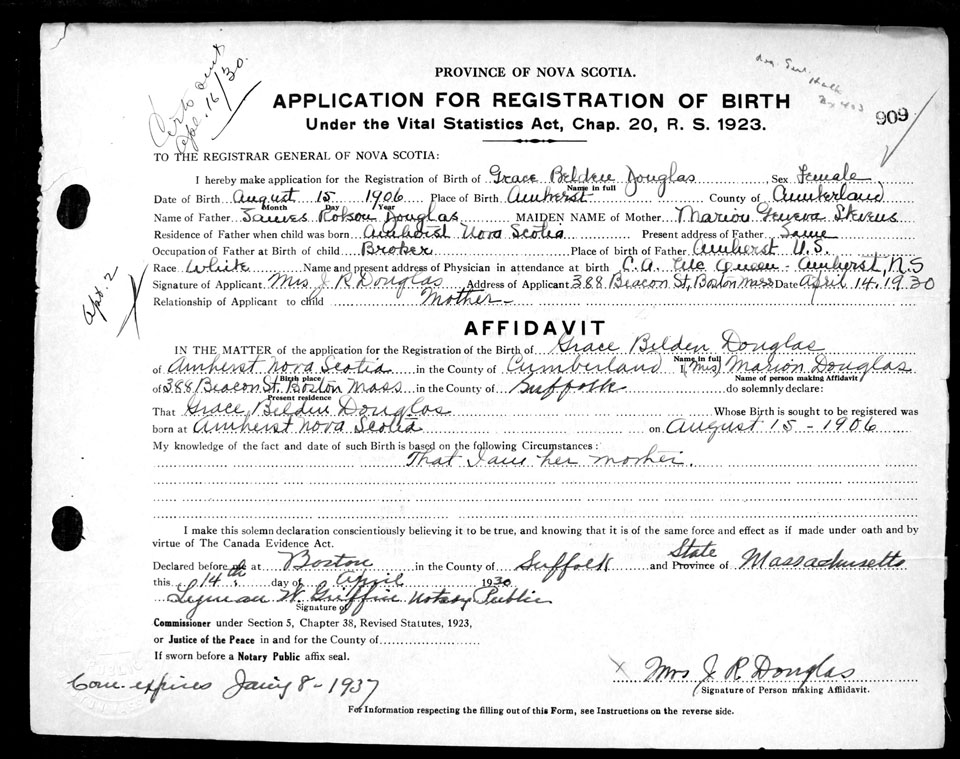 Certs sent
Apl. 16/30.
PROVINCE OF NOVA SCOTIA.
APPLICATION FOR REGISTRATION OF BIRTH
909
Under the Vital Statistics Act, Chap. 20, R. S. 1923.
TO THE REGISTRAR GENERAL OF NOVA SCOTIA:
I hereby make application for the Registration of Birth of Grace Belden Douglas Sex Female
Name in full
Date of Birth August 15 1906 Place of Birth Amherst County of Cumberland
Month Day Year
Name of Father James Robson Douglas MAIDEN NAME of Mother Marion Geneva Stevens
Residence of Father when child was born Amherst Nova Scotia Present address of Father Same
Occupation of Father at Birth of child Broker Place of birth of Father Amherst N.S.
Race White Name and present address of Physician in attendance at birth C.A. Mc Queen - Amherst, N.S
Signature of Applicant Mrs J R Douglas Address of Applicant 388 Beacon St, Boston Mass Date April 14. 1930
Relationship of Applicant to child Mother
Apl. 2
AFFIDAVIT
IN THE MATTER of the application for the Registration of the Birth of Grace Belden Douglas
Name in full
of Amherst Nova Scotia in the County of Cumberland I, (Mrs) Marion Douglas
Birth place Name of person making Affidavit
of 388 Beacon St. Boston Mass in the County of Suffolk do solemnly declare:
Present residence
That Grace Belden Douglas Whose Birth is sought to be registered was
born at Amherst Nova Scotia on August 15 - 1906
My knowledge of the fact and date of such Birth is based on the following Circumstances:
That I am her mother.
I make this solemn declaration conscientiously believing it to be true, and knowing that it is of the same force and effect as if made under oath and by
virtue of The Canada Evidence Act.
State
Declared before me at Boston in the County of Suffolk and Province of Massachusetts
this 14th day of April 1930
Lyman W. Griffin Notary Public
Signature of
Commissioner under Section 5, Chapter 38, Revised Statutes, 1923,
or Justice of the Peace in and for the County of
If sworn before a Notary Public affix seal.
X Mrs J R Douglas
Signature of Person making Affidavit.
Com. expires Jan'y 8 - 1937
For Information respecting the filling out of this Form, see Instructions on the reverse side.